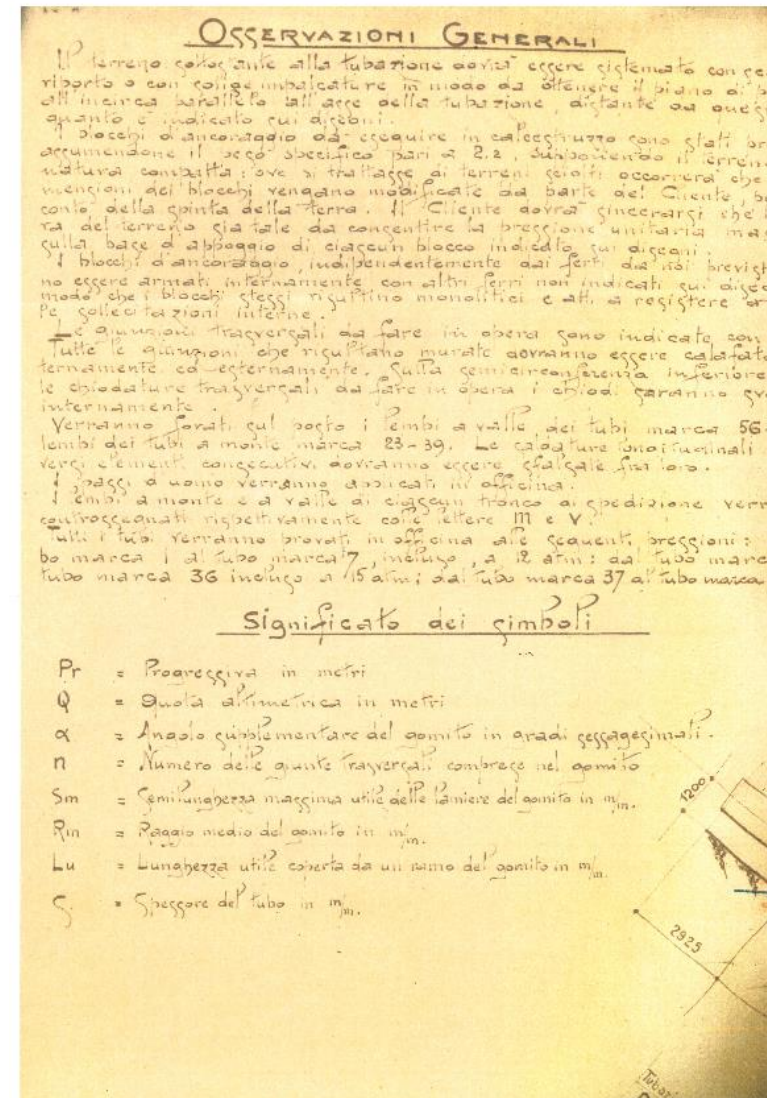 OSSERVAZIONI GENERALI
Il terreno sottostante alla tubazione dovrà essere sistemato con
riporto o con solide impalcature in modo da ottenere il piano di
all'incirca parallelo all'asse della tubazione, distante da
quanto è indicato sui disegni.
I blocchi d'ancoraggio da eseguire in calcestruzzo sono stati
assumendone il peso specifico pari a 2.2, supponendo il
natura compatta: ove si trattasse di terreni sciolti occorrerà che
mensioni dei blocchi vengano modificate da parte del Cliente,
conto della spinta della terra. Il Cliente dovrà sincerarsi che
ra del terreno sia tale da consentire la pressione unitaria
sulla base d'appoggio di ciascun blocco indicata sui disegni.
I blocchi d'ancoraggio, indipendentemente dai ferri da noi
no essere armati internamente con altri ferri non indicati sui
modo che i blocchi stessi risultino monolitici e atti a resistere a
le sollecitazioni interne.
Le giunzioni trasversali da fare in opera sono indicate con
Tutte le giunzioni che risultano murate dovranno essere
ternamente ed esternamente. Sulla semicirconferenza inferiore
le chiodature trasversali da fare in opera i chiodi saranno
internamente.
Verranno forati sul posto i lembi a valle dei tubi marca 56-
lembi dei tubi a monte marca 23-39. Le saldature longitudinali
versi elementi consecutivi dovranno essere sfalsate fra loro.
I passi d'uomo verranno applicati in officina.
I lembi a monte e a valle di ciascun tronco di spedizione
controssegnati rispettivamente colle lettere M e V.
Tutti i tubi verranno provati in officina alle seguenti pressioni:
bo marca 1 al tubo marca 7, incluso, a 12 atm: dal tubo
tubo marca 36 incluso a 15 atm; dal tubo marca 37 al tubo marca
Significato dei simboli
Pr = Progressiva in metri
Q = Quota altimetrica in metri
α = Angolo supplementare del gomito in gradi sessagesimali.
n = Numero delle giunte trasversali comprese nel gomito
Sm = Semilunghezza massima utile delle lamiere del gomito in m/m.
Rm = Raggio medio del gomito in m/m.
Lu = Lunghezza utile coperta da un ramo del gomito in m/m.
S. = Spessore del tubo in m/m.
1200
2925